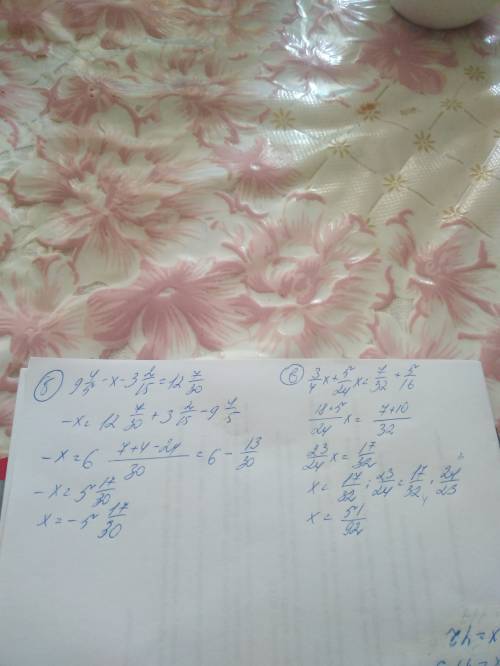 5) 9 4/5 - x - 3 2/15 = 12 7/30
-x = 12 7/30 + 3 2/15 - 9 4/5
-x = 6 (7+4-24)/30 = 6 - 13/30
-x = 5 17/30
x = -5 17/30
6) 3/4 x + 5/24 x = 7/32 + 5/16
(18+5)/24 x = (7+10)/32
23/24 x = 17/32
x = 17/32 : 23/24 = 17/32 4 · 24/23
x = 51/92
x = 42